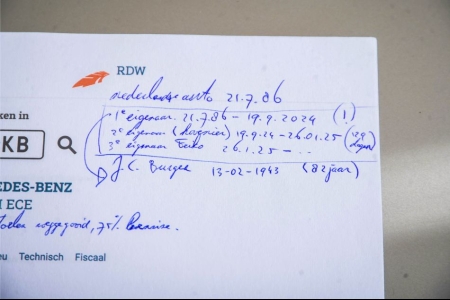 RDW
nederlandse auto 21.7.86
1e eigenaar 21.7.86 – 19.9.2024 (!)
ken in
2e eigenaar ( ) 19.9.24 – 26.01.25 ( dagen)
KB
3e eigenaar 26.1.25 – ...
J.C. Burger 13-02-1943 (82 jaar)
EDES-BENZ
ECE
weggegooid, 75%
eu Technisch Fiscaal